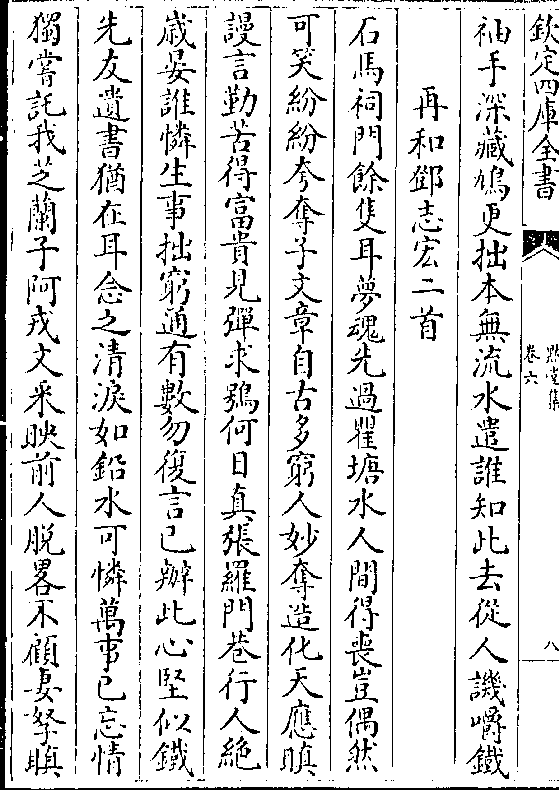 欽定四庫全書
卷六
八
袖手深藏鳩更拙本無流水遣誰知此去從人譏嚼鐵
再和鄧志宏二首
石馬祠門餘隻耳夢魂先過瞿塘水人間得喪豈偶然
可笑紛紛夸奪子文章自古多窮人妙奪造化天應瞋
謾言勤苦得富貴見彈求鴞何日真張羅門巷行人絶
歲晏誰憐生事拙窮通有數勿復言已辦此心堅似鐵
先友遺書猶在耳念之清淚如鉛水可憐萬事已忘情
獨嘗託我芝蘭子阿戎文采映前人脱畧不顧妻孥瞋